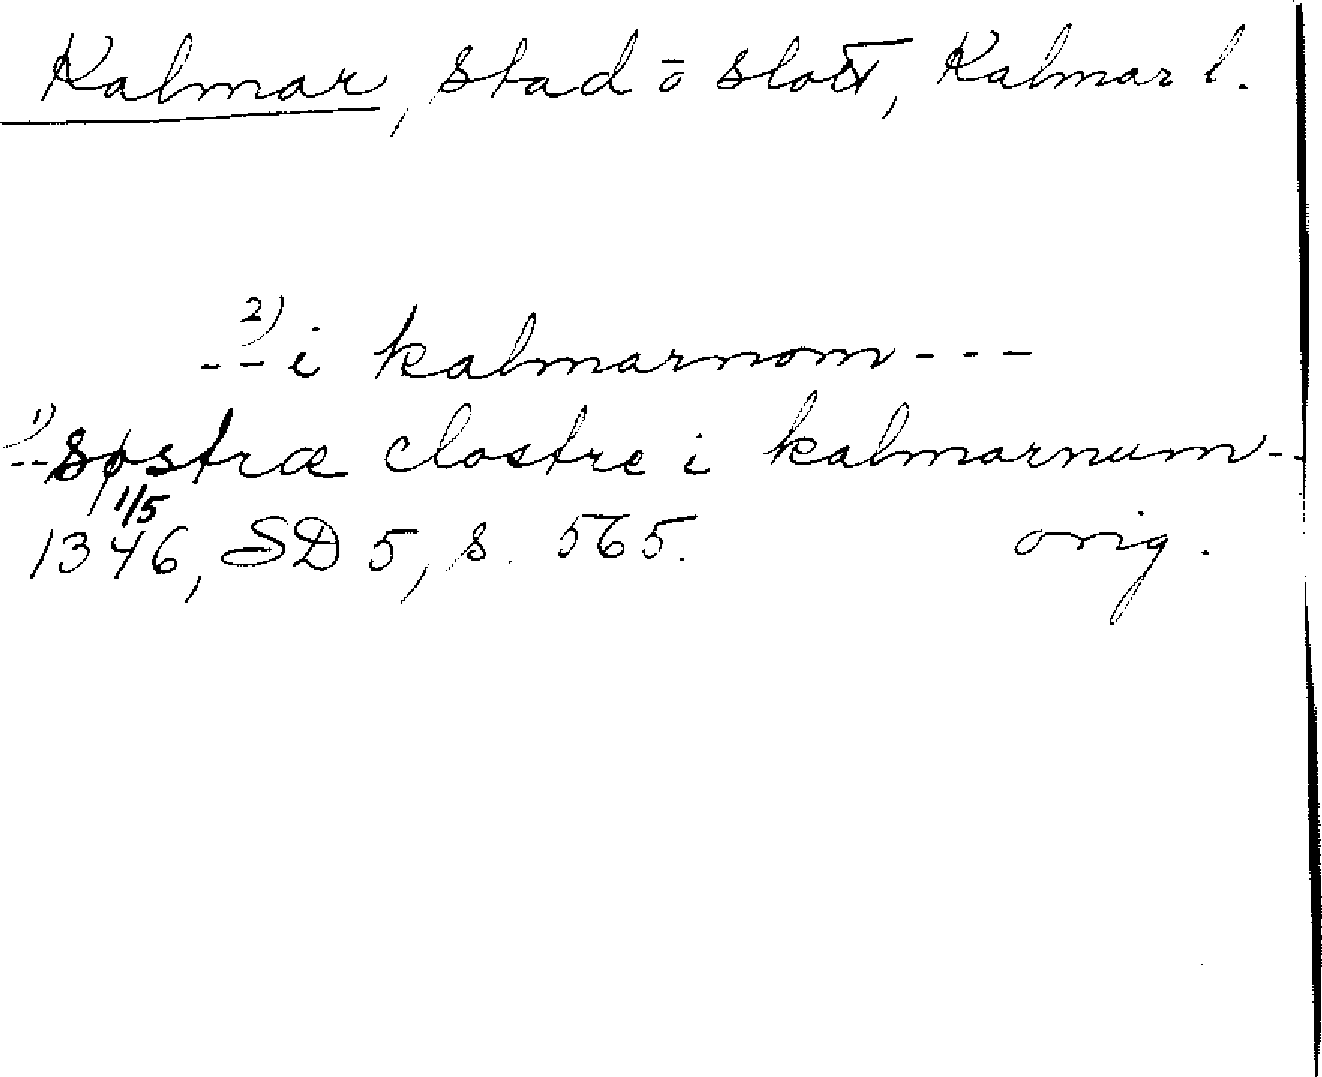 Kalmar, stad ō slott, Kalmar l.
2)
--- i kalmarnom ---
1)
--- søstræ clostre i kalmarnum --
1/5
1346, SD 5, s. 565. orig.